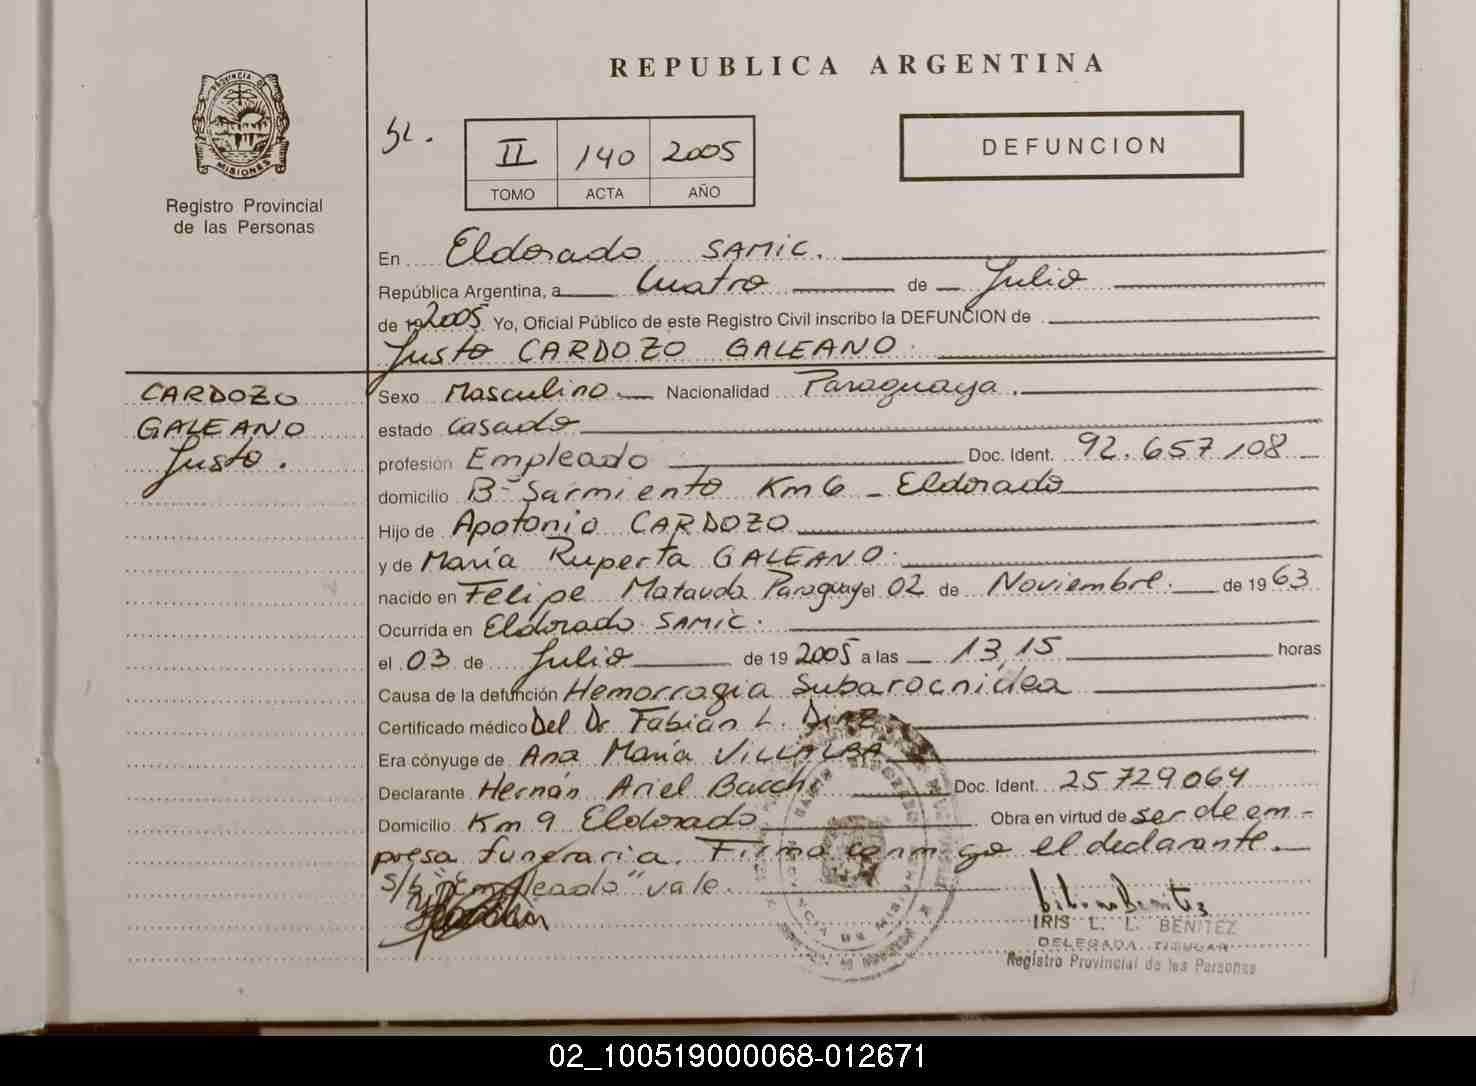 PROVINCIA DE
MISIONES
Registro Provincial
de las Personas
REPUBLICA ARGENTINA
II 140 2005
TOMO ACTA AÑO
DEFUNCION
En Eldorado SAMIC.
República Argentina, a Cuatro de Julio
de 19 2005 Yo, Oficial Público de este Registro Civil inscribo la DEFUNCION de
Justo CARDOZO GALEANO.
CARDOZO
GALEANO
Justo.
Sexo Masculino Nacionalidad Paraguaya.
estado casado
profesión Empleado Doc. Ident. 92.657,108
domicilio Bº Sarmiento Km 6 - Eldorado
Hijo de Apotonio CARDOZO
y de María Ruperta GALEANO.
nacido en Felipe Matauda Paraguay el 02 de Noviembre. de 1963
Ocurrida en Eldorado SAMIC.
el 03 de Julio de 19 2005 a las 13,15 horas
Causa de la defunción Hemorragia Subaracnidea
Certificado médico Del Dr Fabián L.
Era cónyuge de Ana María VILLALBA
Declarante Hernán Ariel Doc. Ident. 25729064
Domicilio Km 9 Eldorado Obra en virtud de ser de em-
presa funeraria. Firma conmigo el declarante.
S/b "Empleado" vale.
IRIS L. L. BENITEZ
DELEGADA TITULAR
Registro Provincial de las Personas
02_100519000068-012671